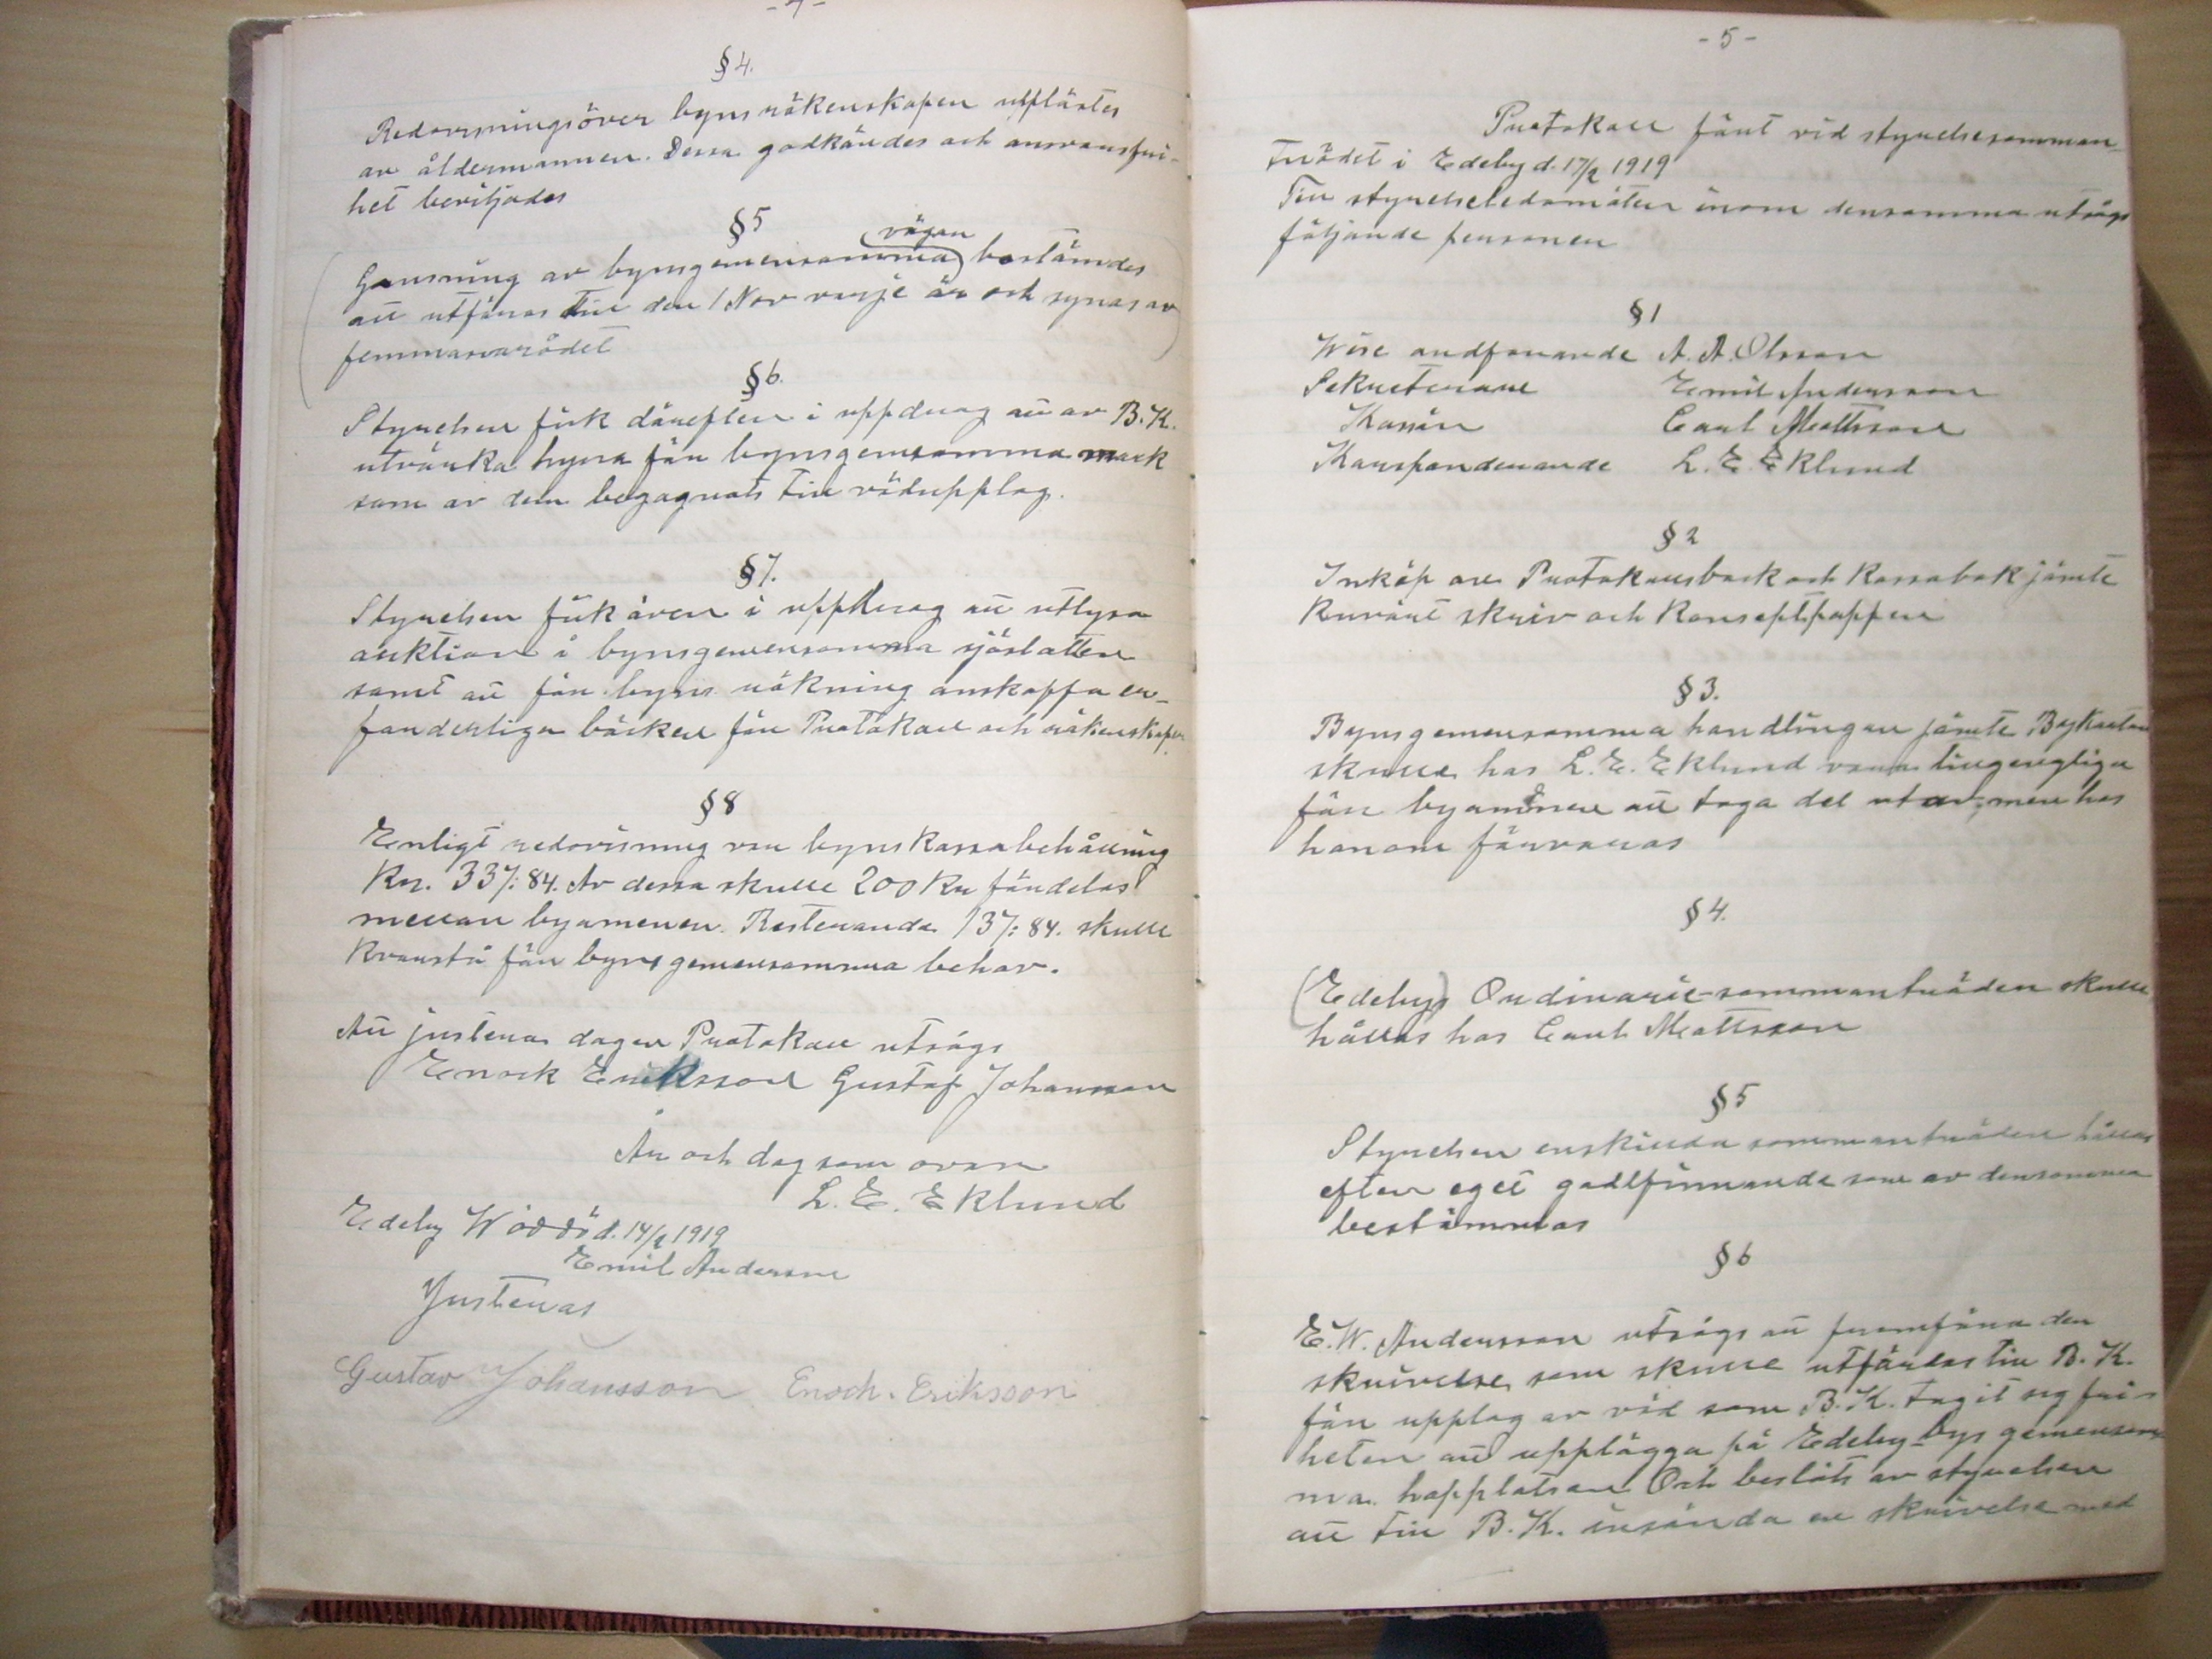 - 4 -
§ 4.
Redovisning över byns räkenskaper upplästes
av åldermannen. Dessa godkändes och ansvarsfri-
het beviljades
§ 5
vägar
Grusning av bynsgemensamma bestämdes
att utföras till den 1 Nov varje år och synas av
femmanarådet
§ 6.
Styrelsen fick därefter i uppdrag att av B.K.
utvärka hyra för bynsgemsamma mark
som av dem begagnats till vedupplag.
§ 7.
Styrelsen fick även i uppdrag att utlysa
auktion å bynsgemensamma sjöslåtter
samt att för byns räkning anskaffa er-
forderliga böcker för Protokoll och räkenskaper.
§ 8
Enligt redovisning var byns kassabehållning
Kr. 337:84. Av dessa skulle 200 Kr fördelas
mellan byamenen. Resterande 137:84. skulle
kvarstå för byns gemensamma behov.
Att justera dagens Protokoll utsågs
Enock Eriksson Gustaf Johansson
År och dag som ovan
L. E. Eklund
Edeby Wäddö d. 14/2 1919
Emil Andersson
Justeras
Gustav Johansson Enoch. Eriksson
- 5 -
Protokoll fört vid styrelsesamman-
trädet i Edeby d. 17/2 1919
Till styrelseledamöter inom densamma utsågs
följande personer
§ 1
Wise ordförande A. A. Olsson
Sekreterare Emil Andersson
Kassör Carl Mattsson
Korsponderande L. E. Eklund
§ 2
Inköp av Protokollsbok och Kassabok jämte
Kuvärt skriv och Konseptpapper
§ 3.
Bynsgemensamma handlingar jämte Bykartan
skulle hos L. E. Eklund vara tillgengliga
för byamänen att taga del utav, men hos
honom förvaras
§ 4.
(Edeby) Ordinarie sammanträden skulle
hållas hos Carl Mattsson
§ 5
Styrelsen enskillda sammanträden hållas
efter eget godtfinnande som av densamma
bestämmas
§ 6
E. W. Andersson utsågs att framföra den
skrivelse som skulle utfärdas till B. K.
för upplag av ved som B. K. tagit sig fri-
heten att upplägga på Edeby bys gemensam-
ma happlatsen Och beslöts av styrelsen
att till B. K. insända en skrivelse med